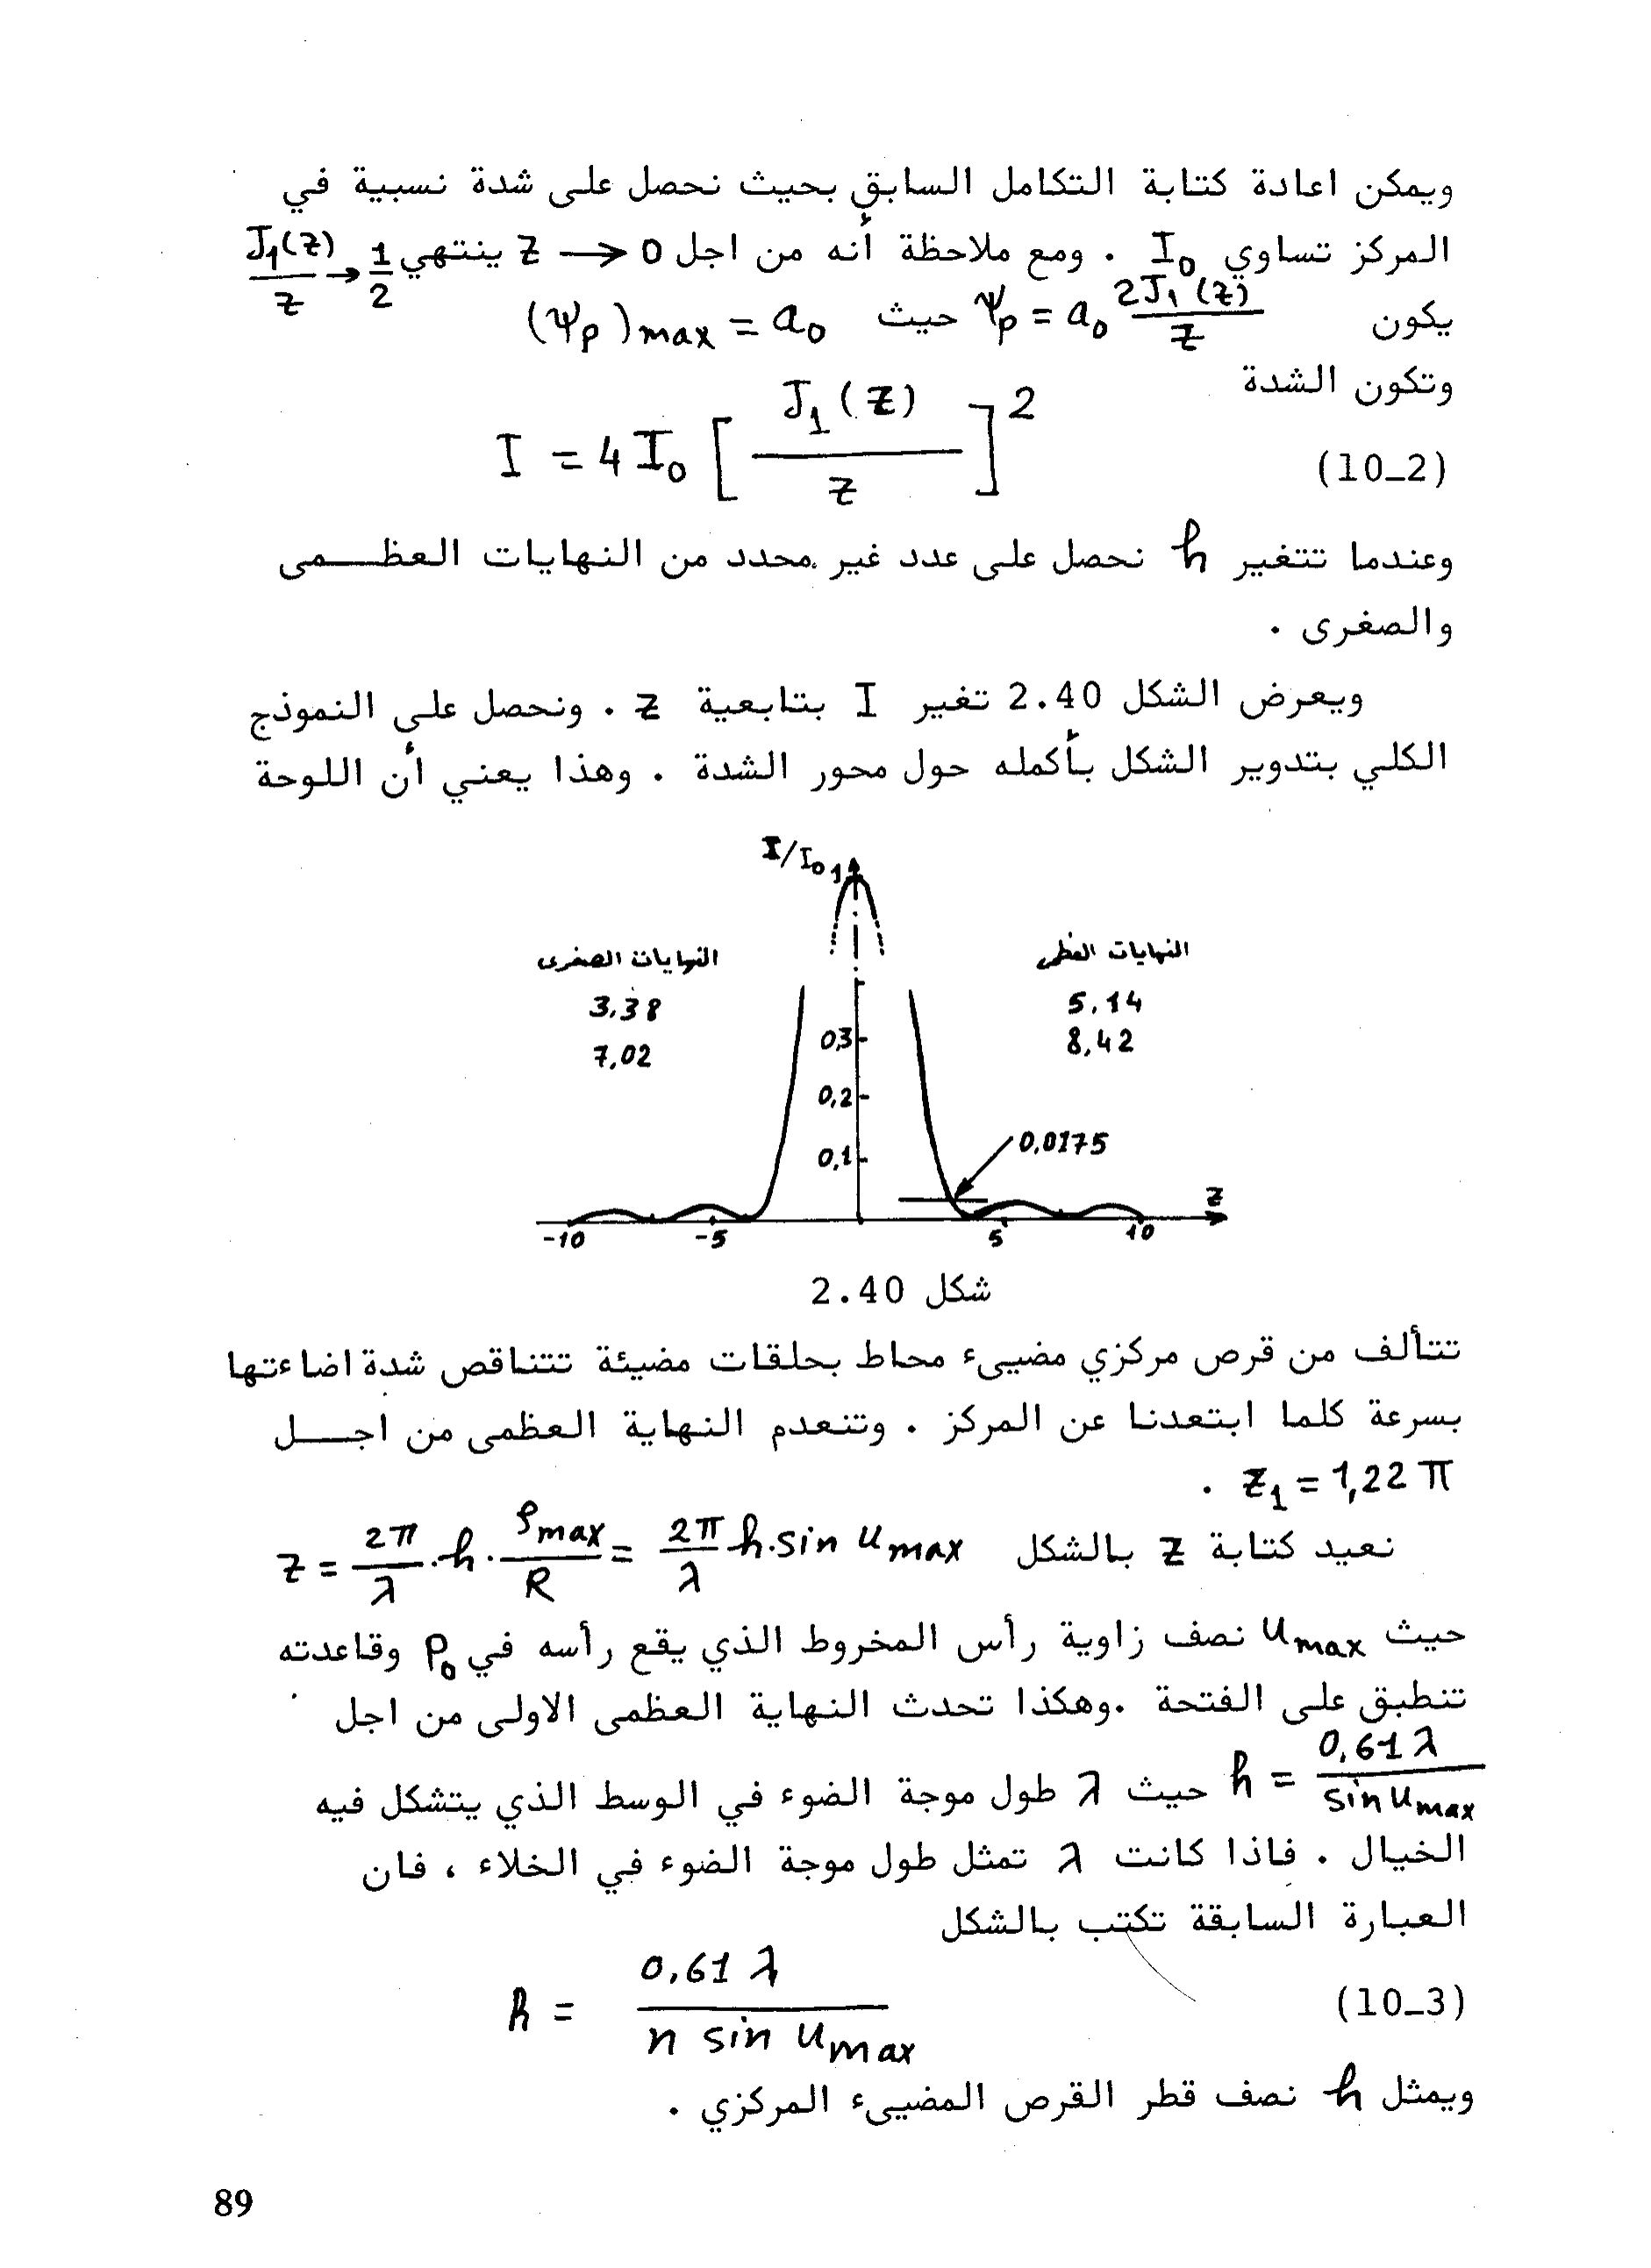 ويمكن اعادة كتابة التكامل السابق بحيث نحصل على شدة نسبية في
المركز تساوي I₀ . ومع ملاحظة أنه من اجل z → 0 ينتهي J₁(z)/z → 1/2
يكون ψp = a₀ 2J₁(z)/z حيث (ψp)max = a₀
وتكون الشدة
(10_2) I = 4 I₀ [ J₁(z) / z ]²
وعندما تتغير h نحصل على عدد غير محدد من النهايات العظــمى
والصغرى .
ويعرض الشكل 2.40 تغير I بتابعية z . ونحصل على النموذج
الكلي بتدوير الشكل بأكمله حول محور الشدة . وهذا يعني أن اللوحة
I/I₀ 1
النهايات الصغرى
3,38
7,02
النهايات العظمى
5,14
8,42
0,3
0,2
0,1
0,0175
z
-10 -5 5 10
شكل 2.40
تتألف من قرص مركزي مضيىء محاط بحلقات مضيئة تتناقص شدة اضاءتها
بسرعة كلما ابتعدنا عن المركز . وتنعدم النهاية العظمى من اجــل
z₁ = 1,22 π .
نعيد كتابة z بالشكل z = 2π/λ . h . ρmax/R = 2π/λ h . sin umax
حيث umax نصف زاوية رأس المخروط الذي يقع رأسه في P₀ وقاعدته
تنطبق على الفتحة .وهكذا تحدث النهاية العظمى الاولى من اجل
h = 0,61 λ / sin umax حيث λ طول موجة الضوء في الوسط الذي يتشكل فيه
الخيال . فاذا كانت λ تمثل طول موجة الضوء في الخلاء ، فان
العبارة السابقة تكتب بالشكل
(10_3) h = 0,61 λ / n sin umax
ويمثل h نصف قطر القرص المضيىء المركزي .
89